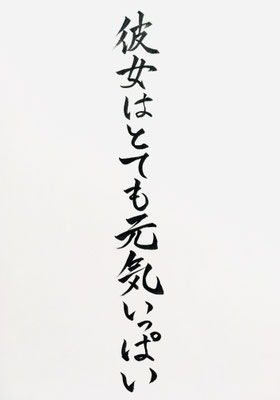 彼女はとても元気いっぱい